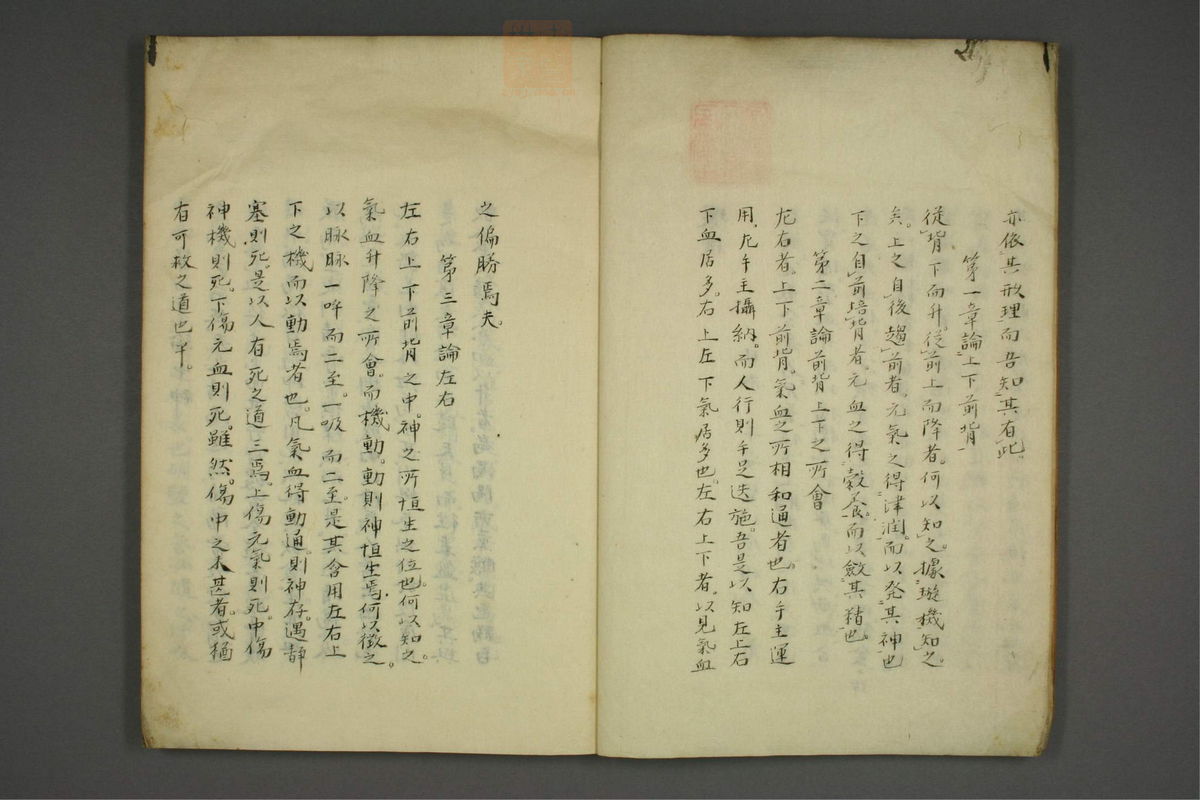 亦依其形理而吾知其有此。
第一章論上下前背
従背下而升。従前上而降者。何以知之。據璇機知之
矣。上之自後趨前者。元氣之得津潤。而以発其神也
下之自前培背者。元血之得穀养。而以斂其精也。
第二章論前背上下之所會
左右者。上下前背。氣血之所相和通者也。右手主運
用。左手主攝納。而人行則手足迭施。吾是以知左上右
下血居多。右上左下氣居多也。左右上下者。以見氣血
之偏勝焉夫。
第三章論左右
左右上下前背之中。神之所恒生之位也。何以知之。
氣血升降之所會。而機動。動則神恒生焉。何以徴之。
以脉脉一呼而二至。一吸而二至。是其含用左右上
下之機而以動焉者也。凡氣血得動通。則神存。遇静
塞則死。是以人有死之道三焉。上傷元氣則死。中傷
神機則死。下傷元血則死。雖然。傷中之未甚者。或猶
有可救之道也乎。